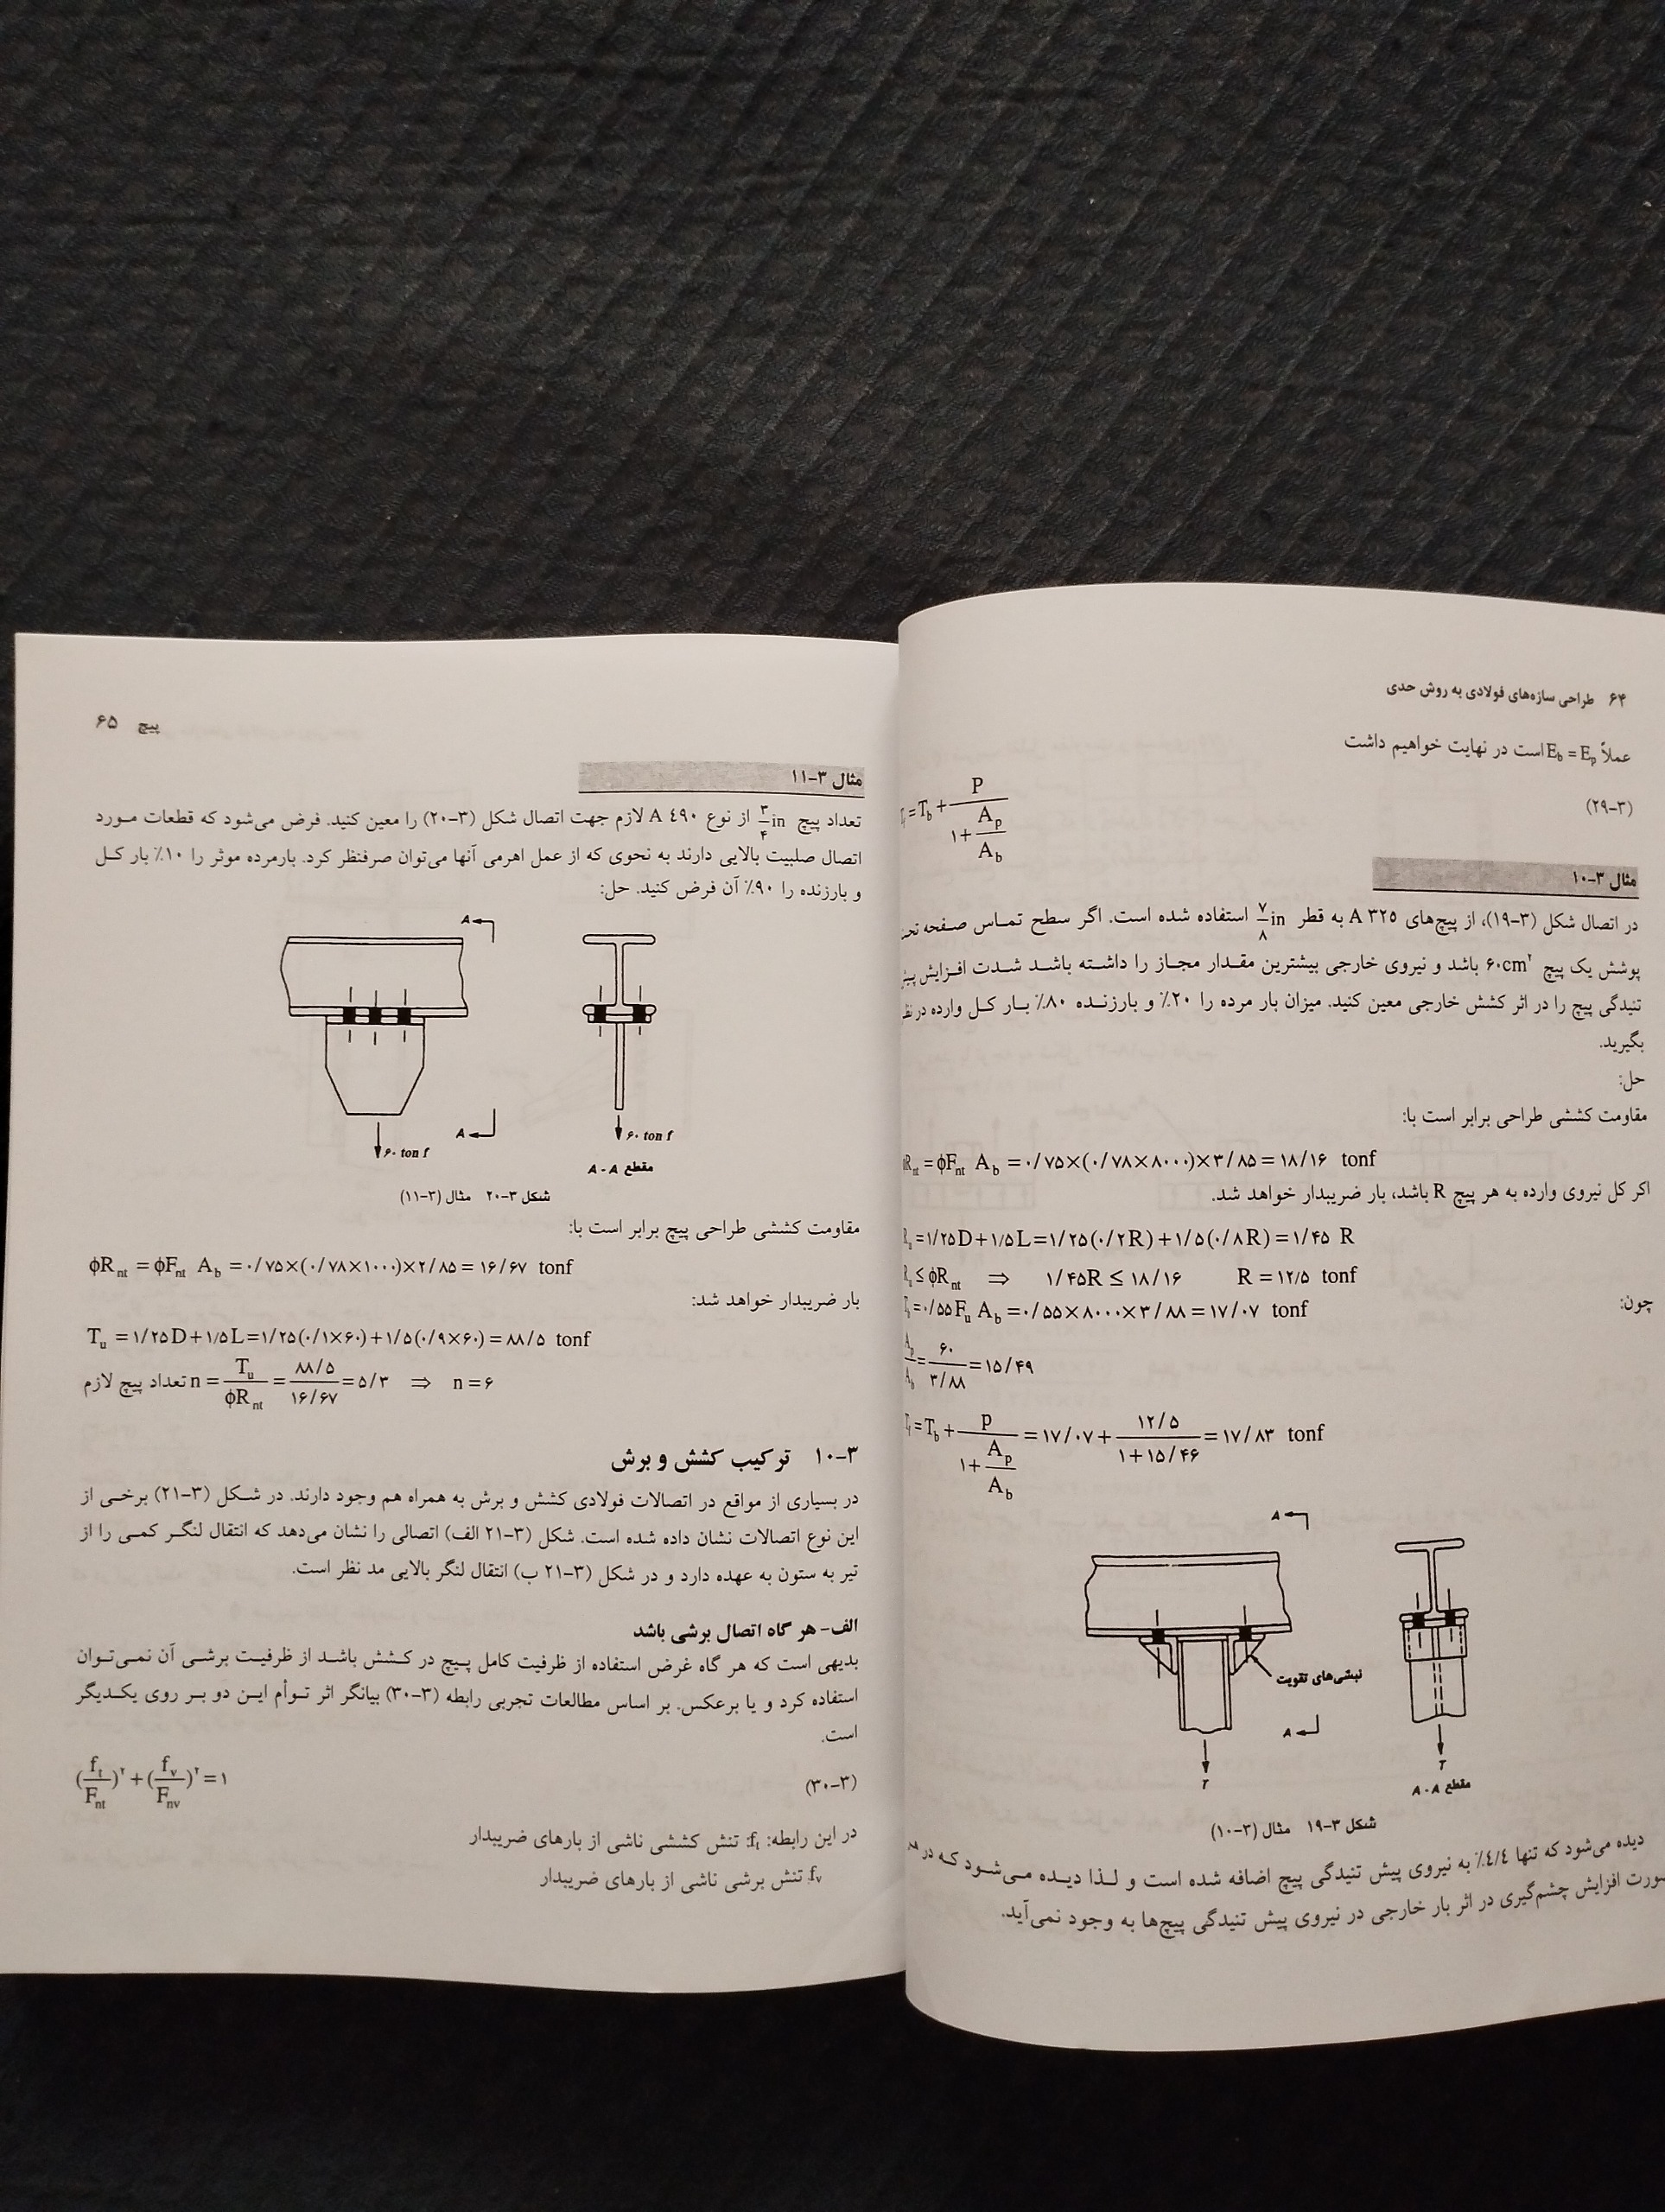 ۶۴ طراحی سازه‌های فولادی به روش حدی
عملاً E_b = E_p است در نهایت خواهیم داشت
= T_b + P / (۱ + A_p / A_b) (۳-۲۹)
مثال ۳-۱۰
در اتصال شکل (۳-۱۹)، از پیچ‌های A ۳۲۵ به قطر ۷/۸ in استفاده شده است. اگر سطح تماس صفحه
پوشش یک پیچ ۶۰cm² باشد و نیروی خارجی بیشترین مقدار مجاز را داشته باشد شدت افزایش
تنیدگی پیچ را در اثر کشش خارجی معین کنید. میزان بار مرده را ۲۰٪ و بارزنده ۸۰٪ بار کل وارده در
بگیرید.
حل:
مقاومت کششی طراحی برابر است با:
R_nt = ϕF_nt A_b = ۰/۷۵×(۰/۷۸×۸۰۰۰)×۳/۸۵ = ۱۸/۱۶ tonf
اکر کل نیروی وارده به هر پیچ R باشد، بار ضریبدار خواهد شد.
= ۱/۲۵D + ۱/۵L = ۱/۲۵(۰/۲R) + ۱/۵(۰/۸R) = ۱/۴۵ R
≤ ϕR_nt ⇒ ۱/۴۵R ≤ ۱۸/۱۶ R = ۱۲/۵ tonf
چون: = ۰/۵۵F_u A_b = ۰/۵۵×۸۰۰۰×۳/۸۸ = ۱۷/۰۷ tonf
A_p / A_b = ۶۰ / ۳/۸۸ = ۱۵/۴۹
= T_b + p / (۱ + A_p / A_b) = ۱۷/۰۷ + ۱۲/۵ / (۱+۱۵/۴۶) = ۱۷/۸۳ tonf
A
نبشی‌های تقویت
A
T
T
مقطع A-A
شکل ۳-۱۹ مثال (۳-۱۰)
دیده می‌شود که تنها ۴/۴٪ به نیروی پیش تنیدگی پیچ اضافه شده است و لذا دیده می‌شود که در
صورت افزایش چشم‌گیری در اثر بار خارجی در نیروی پیش تنیدگی پیچ‌ها به وجود نمی‌آید.
پیچ ۶۵
مثال ۳-۱۱
تعداد پیچ ۳/۴ in از نوع A ۴۹۰ لازم جهت اتصال شکل (۳-۲۰) را معین کنید. فرض می‌شود که قطعات مورد
اتصال صلبیت بالایی دارند به نحوی که از عمل اهرمی آنها می‌توان صرفنظر کرد. بارمرده موثر را ۱۰٪ بار کل
و بارزنده را ۹۰٪ آن فرض کنید. حل:
A
A
۶۰ ton f
۶۰ ton f
مقطع A-A
شکل ۳-۲۰ مثال (۳-۱۱)
مقاومت کششی طراحی پیچ برابر است با:
ϕR_nt = ϕF_nt A_b = ۰/۷۵×(۰/۷۸×۱۰۰۰)×۲/۸۵ = ۱۶/۶۷ tonf
بار ضریبدار خواهد شد:
T_u = ۱/۲۵D + ۱/۵L = ۱/۲۵(۰/۱×۶۰) + ۱/۵(۰/۹×۶۰) = ۸۸/۵ tonf
تعداد پیچ لازم n = T_u / ϕR_nt = ۸۸/۵ / ۱۶/۶۷ = ۵/۳ ⇒ n = ۶
۳-۱۰ ترکیب کشش و برش
در بسیاری از مواقع در اتصالات فولادی کشش و برش به همراه هم وجود دارند. در شکل (۳-۲۱) برخی از
این نوع اتصالات نشان داده شده است. شکل (۳-۲۱ الف) اتصالی را نشان می‌دهد که انتقال لنگر کمی را از
تیر به ستون به عهده دارد و در شکل (۳-۲۱ ب) انتقال لنگر بالایی مد نظر است.
الف- هر گاه اتصال برشی باشد
بدیهی است که هر گاه غرض استفاده از ظرفیت کامل پیچ در کشش باشد از ظرفیت برشی آن نمی‌توان
استفاده کرد و یا برعکس. بر اساس مطالعات تجربی رابطه (۳-۳۰) بیانگر اثر توأم این دو بر روی یکدیگر
است.
(f_t / F_nt)² + (f_v / F_nv)² = ۱ (۳-۳۰)
در این رابطه: f_t: تنش کششی ناشی از بارهای ضریبدار
f_v: تنش برشی ناشی از بارهای ضریبدار